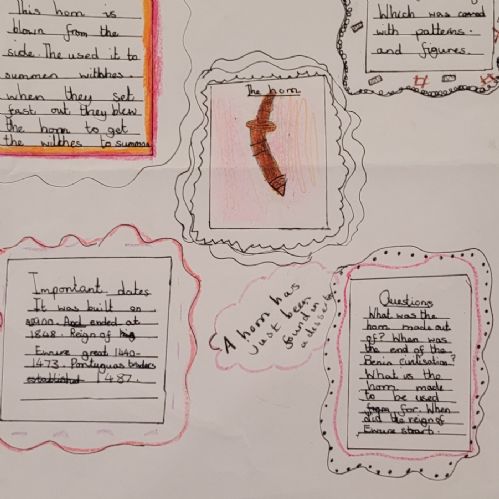 This horn is
blown from the
side. The used it to
summen withhes.
when they set
fast out they blew
the horn to get
the withhes to summon
Which was carved
with patterns.
and figures.
The horn
Important dates
It was built on
ended at
1848. Reign of
Ewure great 1440-
1473. Portyguas traders
established 1487.
A horn has
Just been
found in
Questions
What was the
horn made out
of? When was
the end of the
Benin Civilisation?
What is the
horn made
to be used
from for. When
did the reign of
Ewure start.